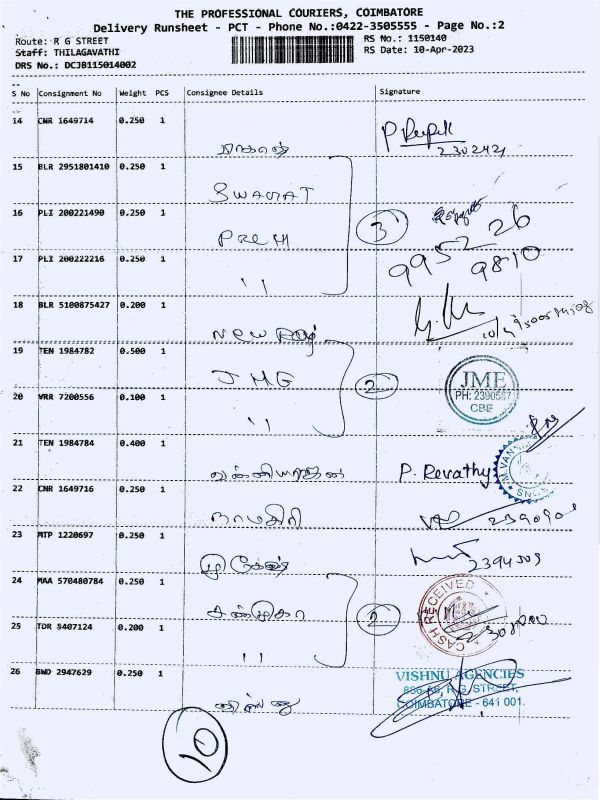 THE PROFESSIONAL COURIERS, COIMBATORE
Delivery Runsheet - PCT - Phone No.:0422-3505555 - Page No.:2
Route: R G STREET
RS No.: 1150140
Staff: THILAGAVATHI
RS Date: 10-Apr-2023
DRS No.: DCJB115014002
S No Consignment No Weight PCS Consignee Details Signature
14 CNR 1649714 0.250 1
2302421
15 BLR 2951801410 0.250 1
SWAGAT
16 PLI 200221490 0.250 1
PREM
3
9952 26
9810
17 PLI 200222216 0.250 1
"
18 BLR 5100875427 0.200 1
New
19 TEN 1984782 0.500 1
JMG
2
JME
PH: 2390567
CBE
20 VRR 7200556 0.100 1
"
21 TEN 1984784 0.400 1
P. Revathy
22 CNR 1649716 0.250 1
நாமகிரி
23 MTP 1220697 0.250 1
2394509
24 MAA 570480784 0.250 1
2
CASH RECEIVED
25 TDR 5407124 0.200 1
"
26 BWD 2947629 0.250 1
VISHNU AGENCIES
R.G. STREET,
COIMBATORE - 641 001.
10